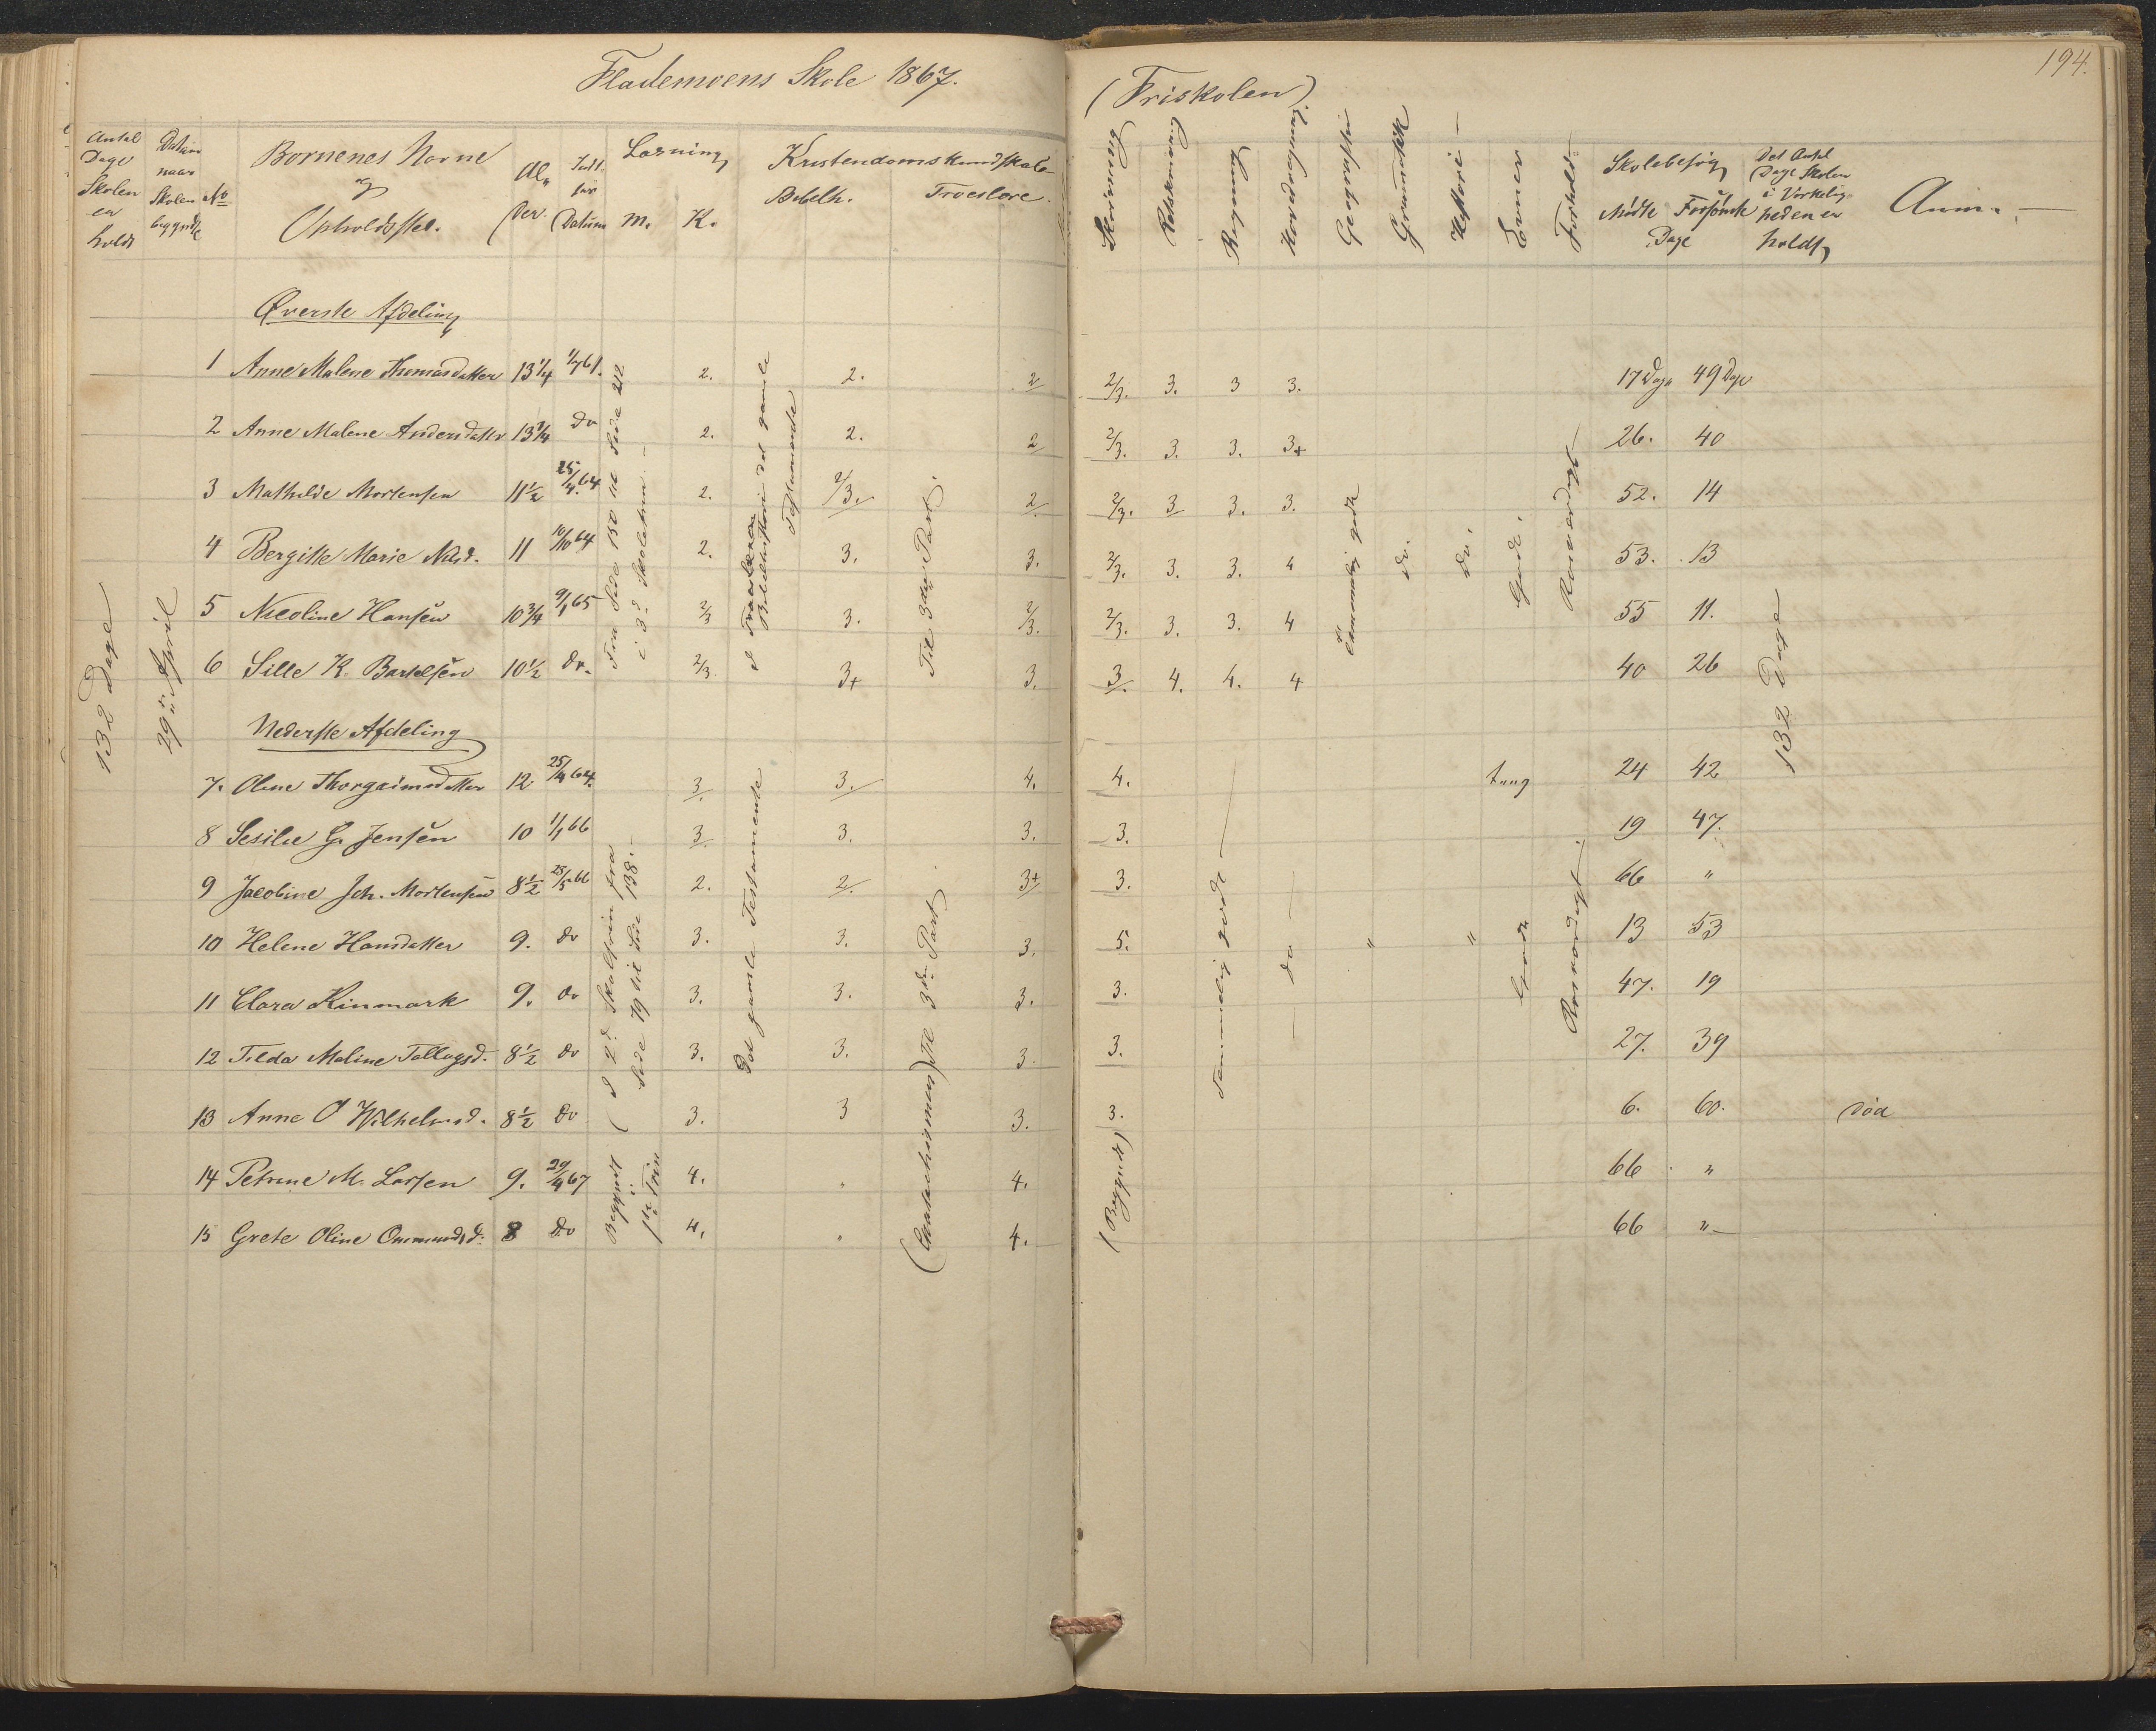 Flademoens Skole 1867.
(Friskolen)
194.
Antal Dage Skolen er holdt
Datum naar Skolen begyndte
No
Børnenes Navne og Opholdssted.
Al, der.
Indt. Datum
Læsning
M. K.
Kristendomskundskab
Bibelh. Troeslære.
Skrivning
Retskrivning
Regning
Hovedregning
Geografie
Grammatik
Historie
Evner
Forhold
Skolebesøg
Mødte Forsømte Dage
Det Antal Dage Skolen i Virkelig heden er holdt
Anm.
132 Dage
29de April
Øverste Afdeling
1 Anne Malene Thomasdatter 13 1/4 1/7 61. 2. 2. 2 2/3. 3. 3 3. 17 Dage 49 Dage
2 Anne Malene Andersdatter 13 1/4 do 2. 2. 2 2/3. 3. 3. 3+ 26. 40
3 Mathilde Mortensen 11 1/2 25/4 64 2. 2/3. 2 2/3. 3 3. 3. 52. 14
4 Bergitte Marie Nilsd. 11 10/10 64 2. 3. 3. 2/3. 3. 3. 4 53. 13
5 Nicoline Hansen 10 3/4 9/1 65 2/3 3. 2/3. 2/3. 3. 3. 4 55 11.
6 Sille K. Bartelsen 10 1/2 do. 2/3. 3+ 3. 3. 4. 4. 4 40 26
Fra Side 150 til Side 212
i 3die Skoletrin
Bibelhistorie det gamle Testamente
Til 3die Part.
Temmelig godt
do.
do.
Gode.
Roesværdigt
132 Dage
Nederste Afdeling
7. Oline Thorgrimsdatter 12 25/4 64. 3. 3. 4. 4. tung 24 42
8 Sesilie G. Jensen 10 1/1 66 3. 3. 3. 3. 19 47.
9 Jacobine Joh. Mortensen 8 1/2 25/5 66 2. 2. 3+ 3. 66 "
10 Helene Hansdatter 9. do 3. 3. 3. 5. " " 13 53
11 Clara Kinmark 9. do 3. 3. 3. 3. 47. 19
12 Tilda Maline Tallagsd. 8 1/2 do 3. 3. 3. 3. 27. 39
13 Anne O Wilhelmsd. 8 1/2 do 3. 3 3. 3. 6. 60. død
14 Petrine M. Larsen 9. 29/4 67 4. " 4. 66 "
15 Grete Oline Ommundsd. 8 do 4. " 4. 66 "
(I 2det Skoletrin fra Side 79 til Side 138.
Begyndt i 1ste Trin
Det gamle Testamente
(Chatachismus) Til 3die Part.
(Begyndt)
Temmelig godt
do
Gode
Roesværdigt.